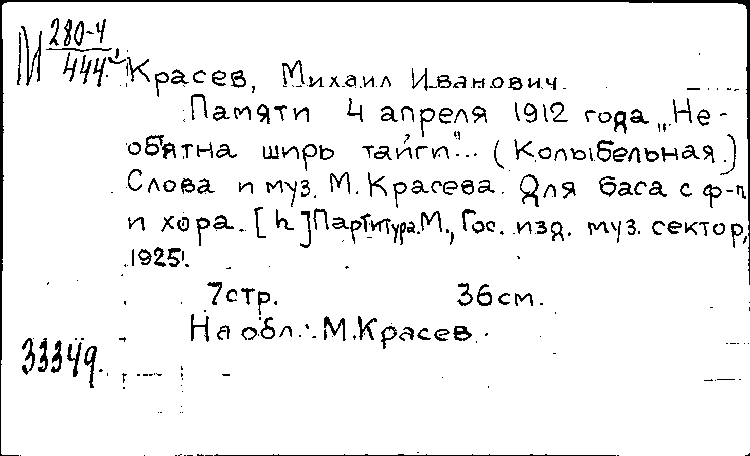 М 280-4
444
Красев, Михаил Иванович.
Памяти 4 апреля 1912 года „Не-
объятна ширь тайги"... (Колыбельная.)
Слова и муз. М. Красева. Для баса с ф-п
и хора. [h] Партитура. М., Гос. изд. муз. сектор,
1925.
7 стр. 36 см.
На обл.: М. Красев.
33349.